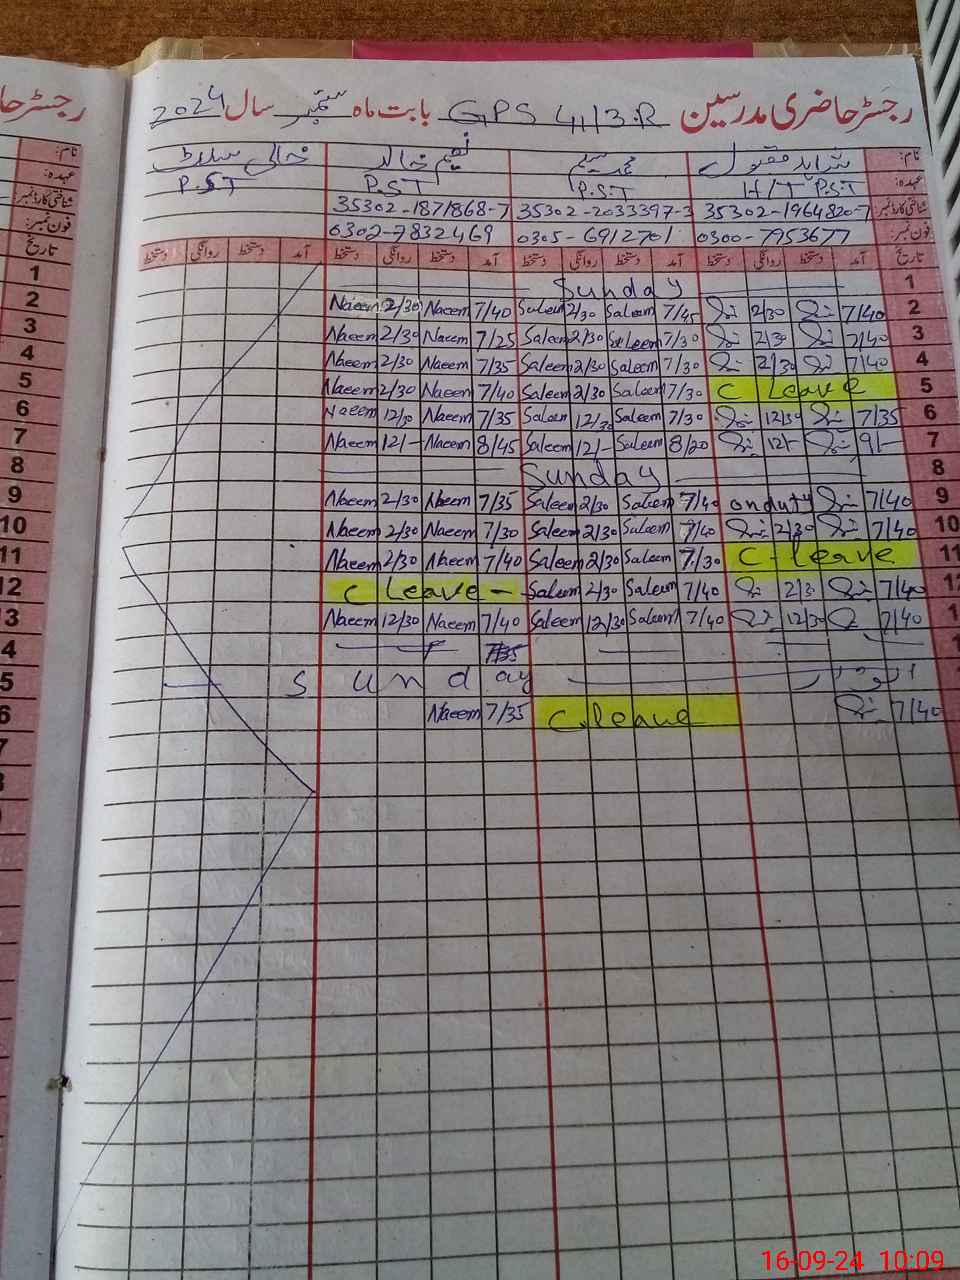 رجسٹر حاضری مدرسین GPS 4/13.R بابت ماہ ستمبر سال 2024
نام: شاہد مقبول محمد سلیم نعیم خالد خالی سیٹ
عہدہ: H/T P.S.T P.S.T P.S.T P.S.T
شناختی کارڈ نمبر: 35302-1964820-7 35302-2033397-3 35302-1871868-7
فون نمبر: 0300-7953677 0305-6912701 0302-7832469
تاریخ آمد دستخط روانگی دستخط آمد دستخط روانگی دستخط آمد دستخط روانگی دستخط آمد دستخط روانگی دستخط
1 Sunday
2 7/40 2/30 7/45 Saleem 2/30 Saleem 7/40 Naeem 2/30 Naeem
3 7/40 2/30 7/30 Saleem 2/30 Saleem 7/25 Naeem 2/30 Naeem
4 7/40 2/30 7/30 Saleem 2/30 Saleem 7/35 Naeem 2/30 Naeem
5 C Leave 7/30 Saleem 2/30 Saleem 7/40 Naeem 2/30 Naeem
6 7/35 12/30 7/30 Saleem 12/30 Saleem 7/35 Naeem 12/30 Naeem
7 9/- 12/- 8/20 Saleem 12/- Saleem 8/45 Naeem 12/- Naeem
8 Sunday
9 7/40 on duty 7/40 Saleem 2/30 Saleem 7/35 Naeem 2/30 Naeem
10 7/40 2/30 7/40 Saleem 2/30 Saleem 7/30 Naeem 2/30 Naeem
11 C-leave 7/30 Saleem 2/30 Saleem 7/40 Naeem 2/30 Naeem
12 7/40 2/3 7/40 Saleem 2/30 Saleem C Leave -
13 7/40 12/30 7/40 Saleem 12/30 Saleem 7/40 Naeem 12/30 Naeem
4
5 اتوار Sunday
6 7/40 C.leave 7/35 Naeem
16-09-24 10:09